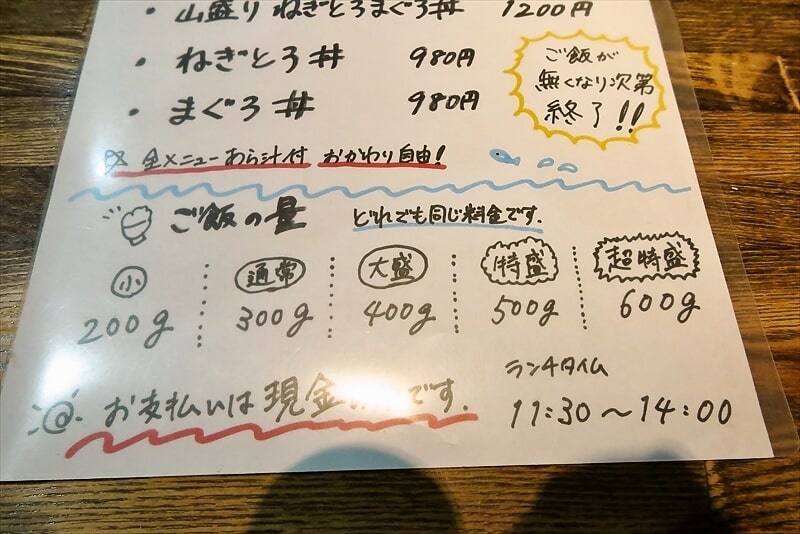 ・山盛りねぎとろまぐろ丼 1200円
・ねぎとろ丼 980円
・まぐろ丼 980円
ご飯が
無くなり次第
終了!!
※全メニューあら汁付 おかわり自由!
ご飯の量 どれでも同じ料金です.
小 通常 大盛 特盛 超特盛
200g 300g 400g 500g 600g
お支払いは現金 です.
ランチタイム
11:30～14:00